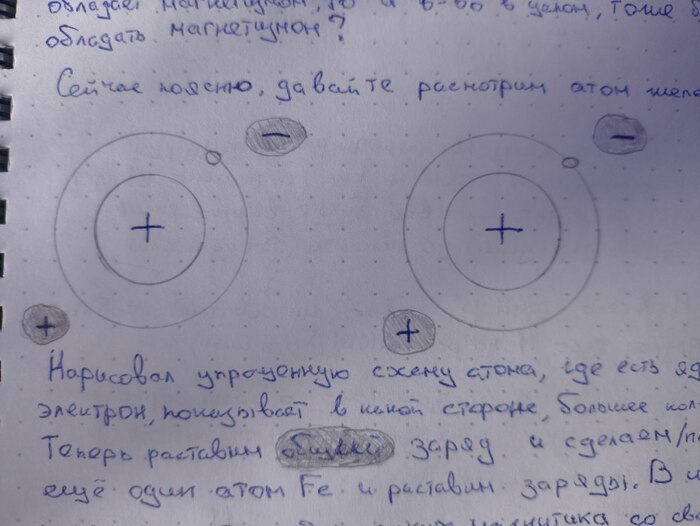 обладает магнетизмом, то и в-во в целом, тоже
обладать магнетизмом?
Сейчас поясню, давайте расмотрим атом
−
−
+
+
+
+
Нарисовал упрощенную схему атома, где есть
электрон, показывает в какой стороне, большее
Теперь расставим общий заряд и сделаем
ещё один атом Fe и раставим заряды. В